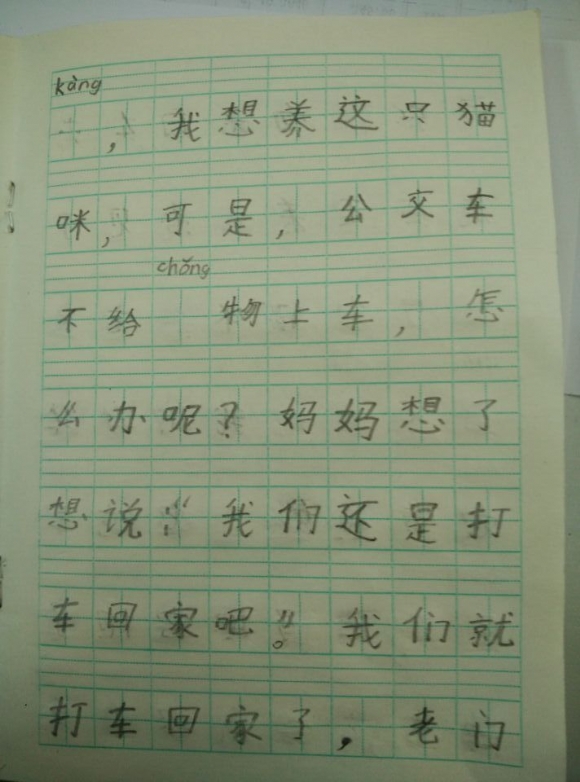 kàng
，我想养这只猫
咪，可是，公交车
chǒng
不给 物上车，怎
么办呢？妈妈想了
想说：“我们还是打
车回家吧”。我们就
打车回家了，老门